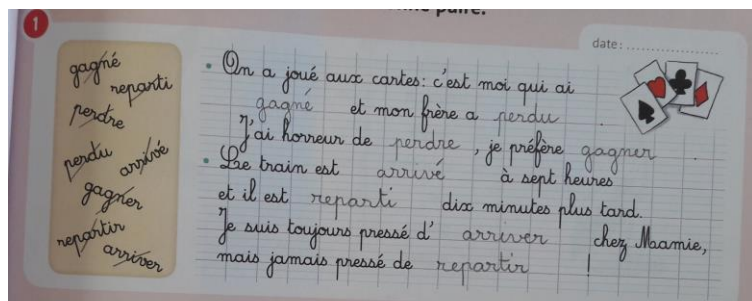 1
date:
gagné
reparti
perdre
perdu
arrivé
gagner
repartir
arriver
On a joué aux cartes : c'est moi qui ai
gagné et mon frère a perdu .
J'ai horreur de perdre , je préfère gagner .
Le train est arrivé à sept heures
et il est reparti dix minutes plus tard.
Je suis toujours pressé d' arriver chez Maamie,
mais jamais pressé de repartir !